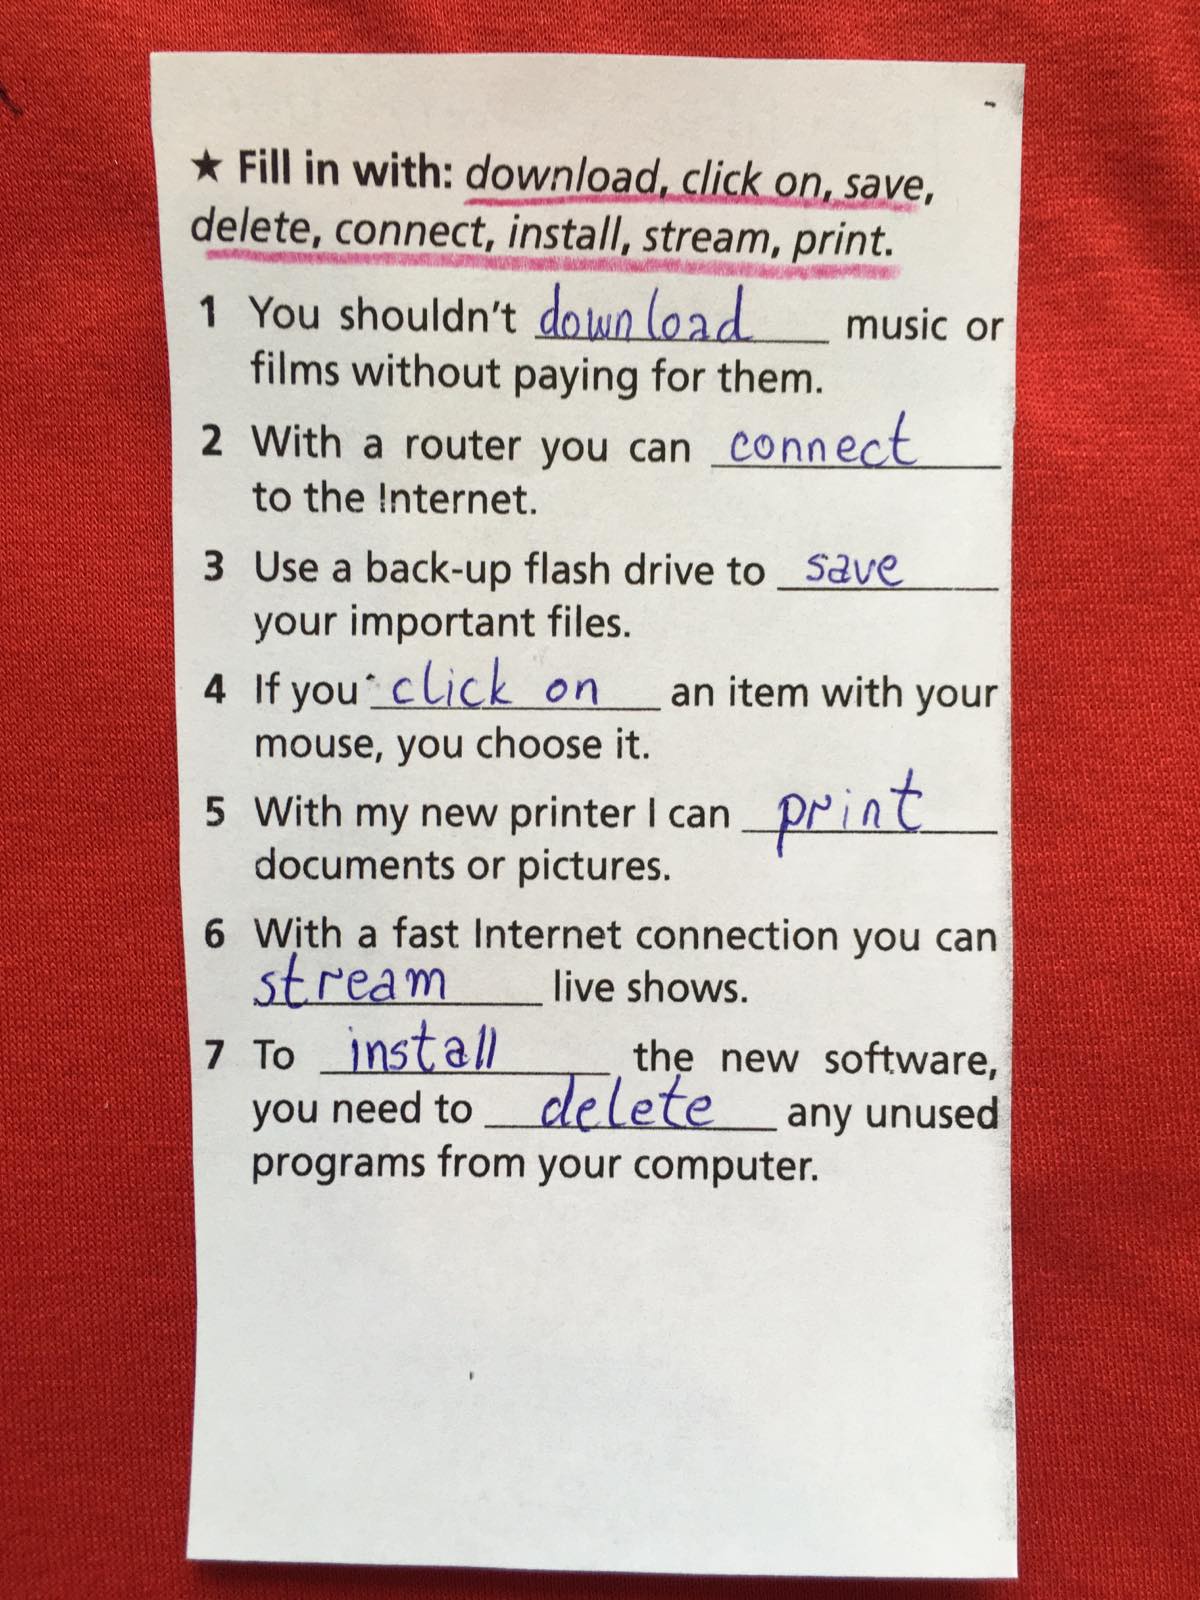 ★ Fill in with: download, click on, save,
delete, connect, install, stream, print.
1 You shouldn't download music or
films without paying for them.
2 With a router you can connect
to the Internet.
3 Use a back-up flash drive to save
your important files.
4 If you click on an item with your
mouse, you choose it.
5 With my new printer I can print
documents or pictures.
6 With a fast Internet connection you can
stream live shows.
7 To install the new software,
you need to delete any unused
programs from your computer.